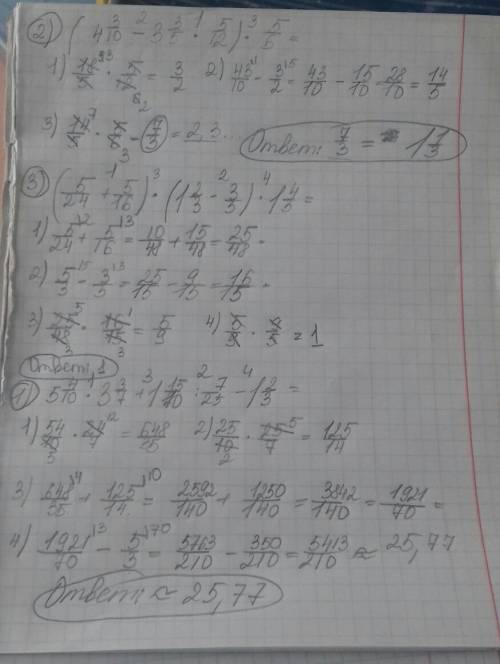 2) (4 3/10 - 3 3/5 · 5/12) · 5/6 =
1) 18/5 · 5/12 = 3/2 2) 43/10 - 3/2 = 43/10 - 15/10 = 28/10 = 14/5
3) 14/5 · 5/6 = 7/3 = 2,3...
Ответ: 7/3 = 1 1/3
3) (5/24 + 5/16) · (1 2/3 - 3/5) · 1 4/5 =
1) 5/24 + 5/16 = 10/48 + 15/48 = 25/48
2) 5/3 - 3/5 = 25/15 - 9/15 = 16/15
3) 25/48 · 16/15 = 5/9 4) 5/9 · 9/5 = 1
Ответ: 1
1) 5 4/10 · 3 3/7 + 1 15/10 : 7/25 - 1 2/3 =
1) 54/10 · 24/7 = 648/35 2) 25/10 · 25/7 = 125/14
3) 648/35 + 125/14 = 2592/140 + 1250/140 = 3842/140 = 1921/70 =
4) 1921/70 - 5/3 = 5763/210 - 350/210 = 5413/210 ≈ 25,77
Ответ: ≈ 25,77